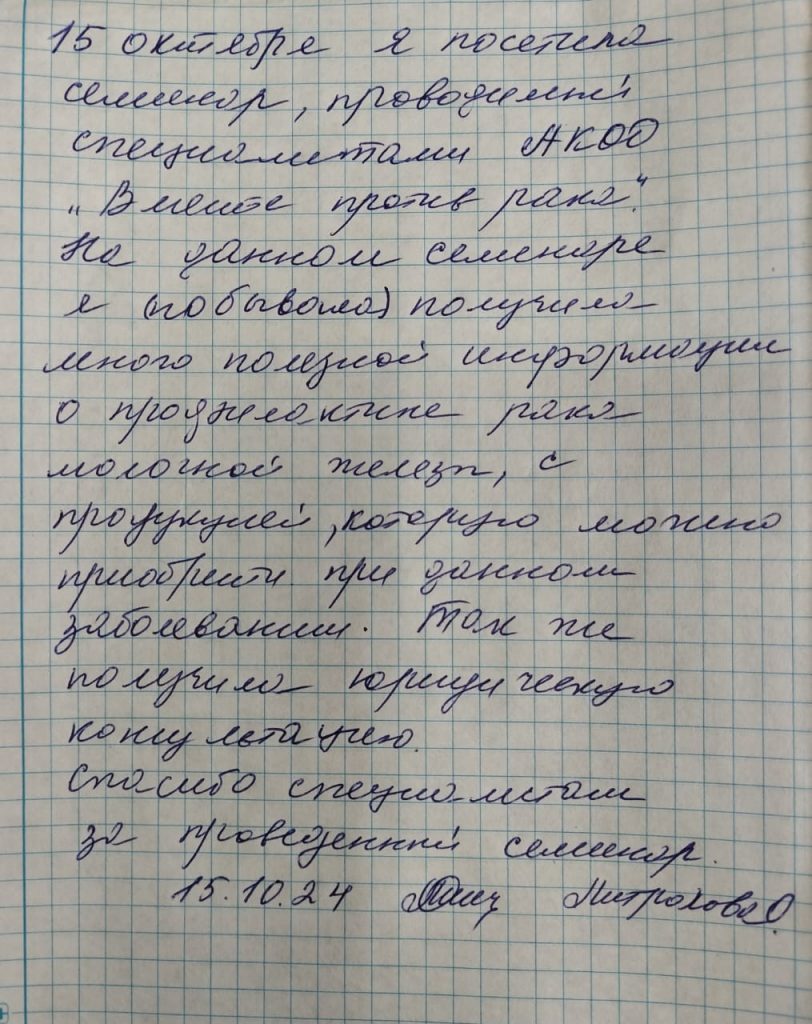 15 октября я посетила
семинар, проводимый
специалистами АКОО
„Вместе против рака".
На данном семинаре
я (побывала) получила
много полезной информации
о профилактике рака
молочной железы, с
продукцией, которую можно
приобрести при данном
заболевании. Так же
получила юридическую
консультацию.
Спасибо специалистам
за проведенный семинар.
15.10.24 Митрохова О